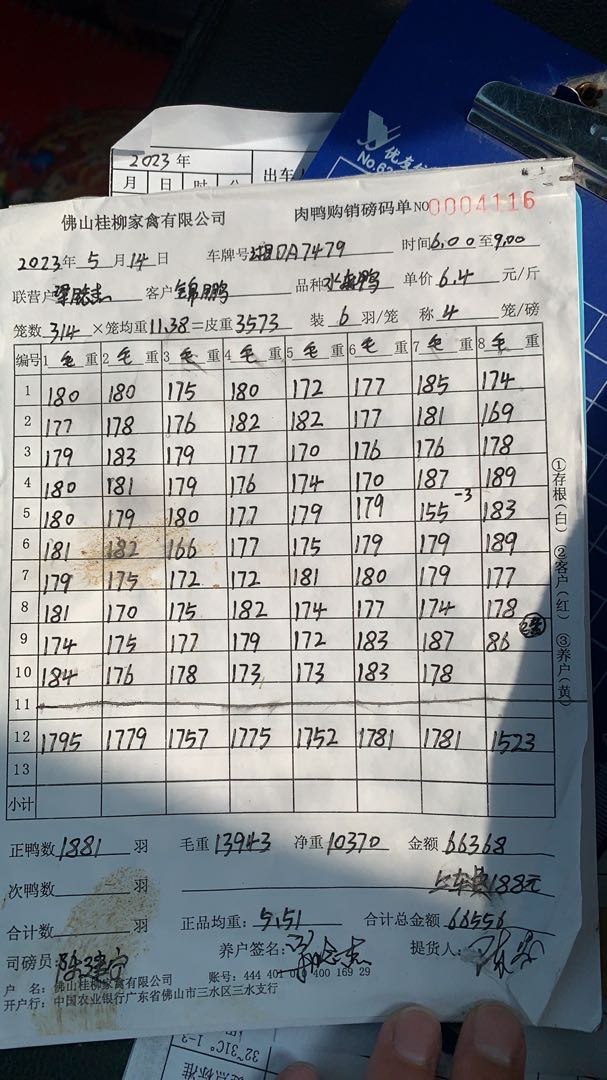 2023年
月 日 时
出车
优友
No.62
佛山桂柳家禽有限公司 肉鸭购销磅码单 NO 0004116
2023年5月14日 车牌号 DA7479 时间6.00至9.00
联营户 客户 锦鹏 品种 水 鸭 单价6.4元/斤
笼数314×笼均重11.38=皮重3573 装6羽/笼 称4笼/磅
编号 1毛重 2毛重 3毛重 4毛重 5毛重 6毛重 7毛重 8毛重
1 180 180 175 180 172 177 185 174
2 177 178 176 182 182 177 181 169
3 179 183 179 177 170 176 176 178
4 180 181 179 176 174 170 187 189
5 180 179 180 177 179 179 155-3 183
6 181 182 166 177 175 179 179 189
7 179 175 172 172 181 180 179 177
8 181 170 175 182 174 177 174 178
9 174 175 177 179 172 183 187 86
10 184 176 178 173 173 183 178
11
12 1795 1779 1757 1775 1752 1781 1781 1523
13
小计
①存根(白) ②客户(红) ③养户(黄)
正鸭数1881羽 毛重13943 净重10370 金额66368
次鸭数 羽 上车费188元
合计数 羽 正品均重:5.51 合计总金额66556
司磅员:陈建宁 养户签名: 提货人:
户 名:佛山桂柳家禽有限公司 账号:444 401 010 400 169 29
开户行:中国农业银行广东省佛山市三水区三水支行
32~31C° 1-3